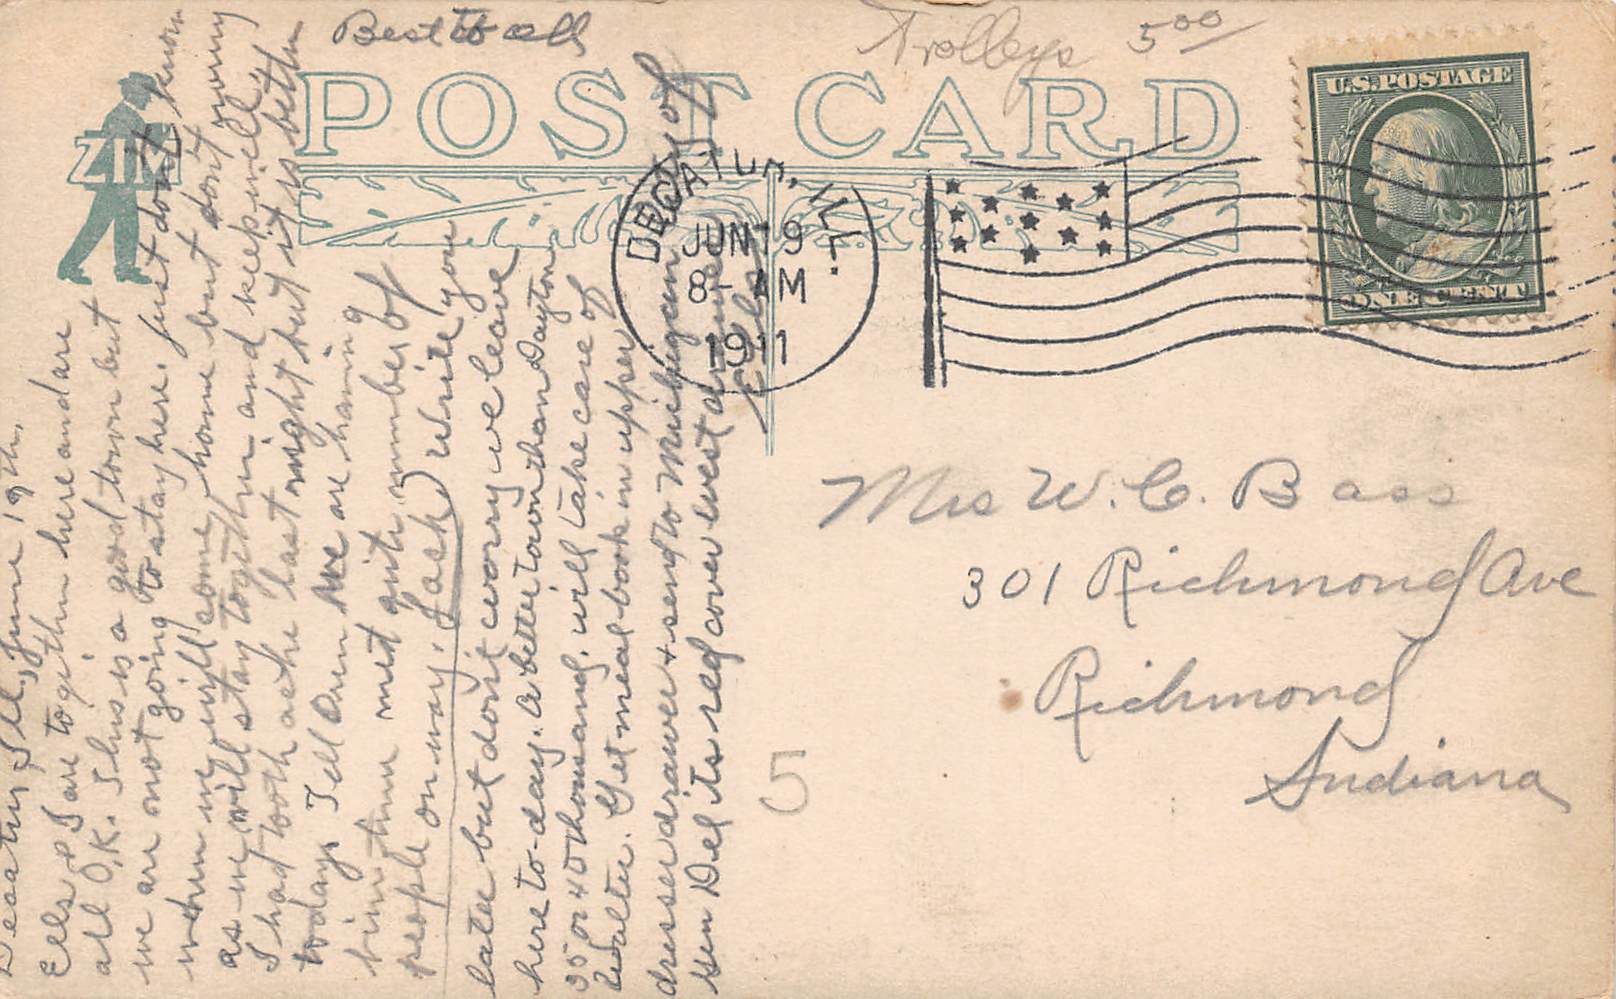 Best to all
Trolleys 5 00
POST CARD
ZIM
U.S. POSTAGE
ONE CENT
DECATUR, ILL.
JUN 19
8- AM
1911
Decatur, Ill, June 19th.
Ells & I are together here and are
all O.K. This is a good town but
we are not going to stay here, just don't know
when we will come home but don't worry
as we will stay together and keep well.
I had tooth ache last night but it is better
today. Tell Oren we are having
fun met quite number of
people on way. Jack) write you
later but don't worry we leave
here to-day. a better town than Dayton
35 or 40 thousand. will take care of
Walter. Get meal book in upper
dresser drawer & send to Michigan
Del its red cover every
Mrs W. C. Bass
301 Richmond Ave
Richmond
Indiana
5